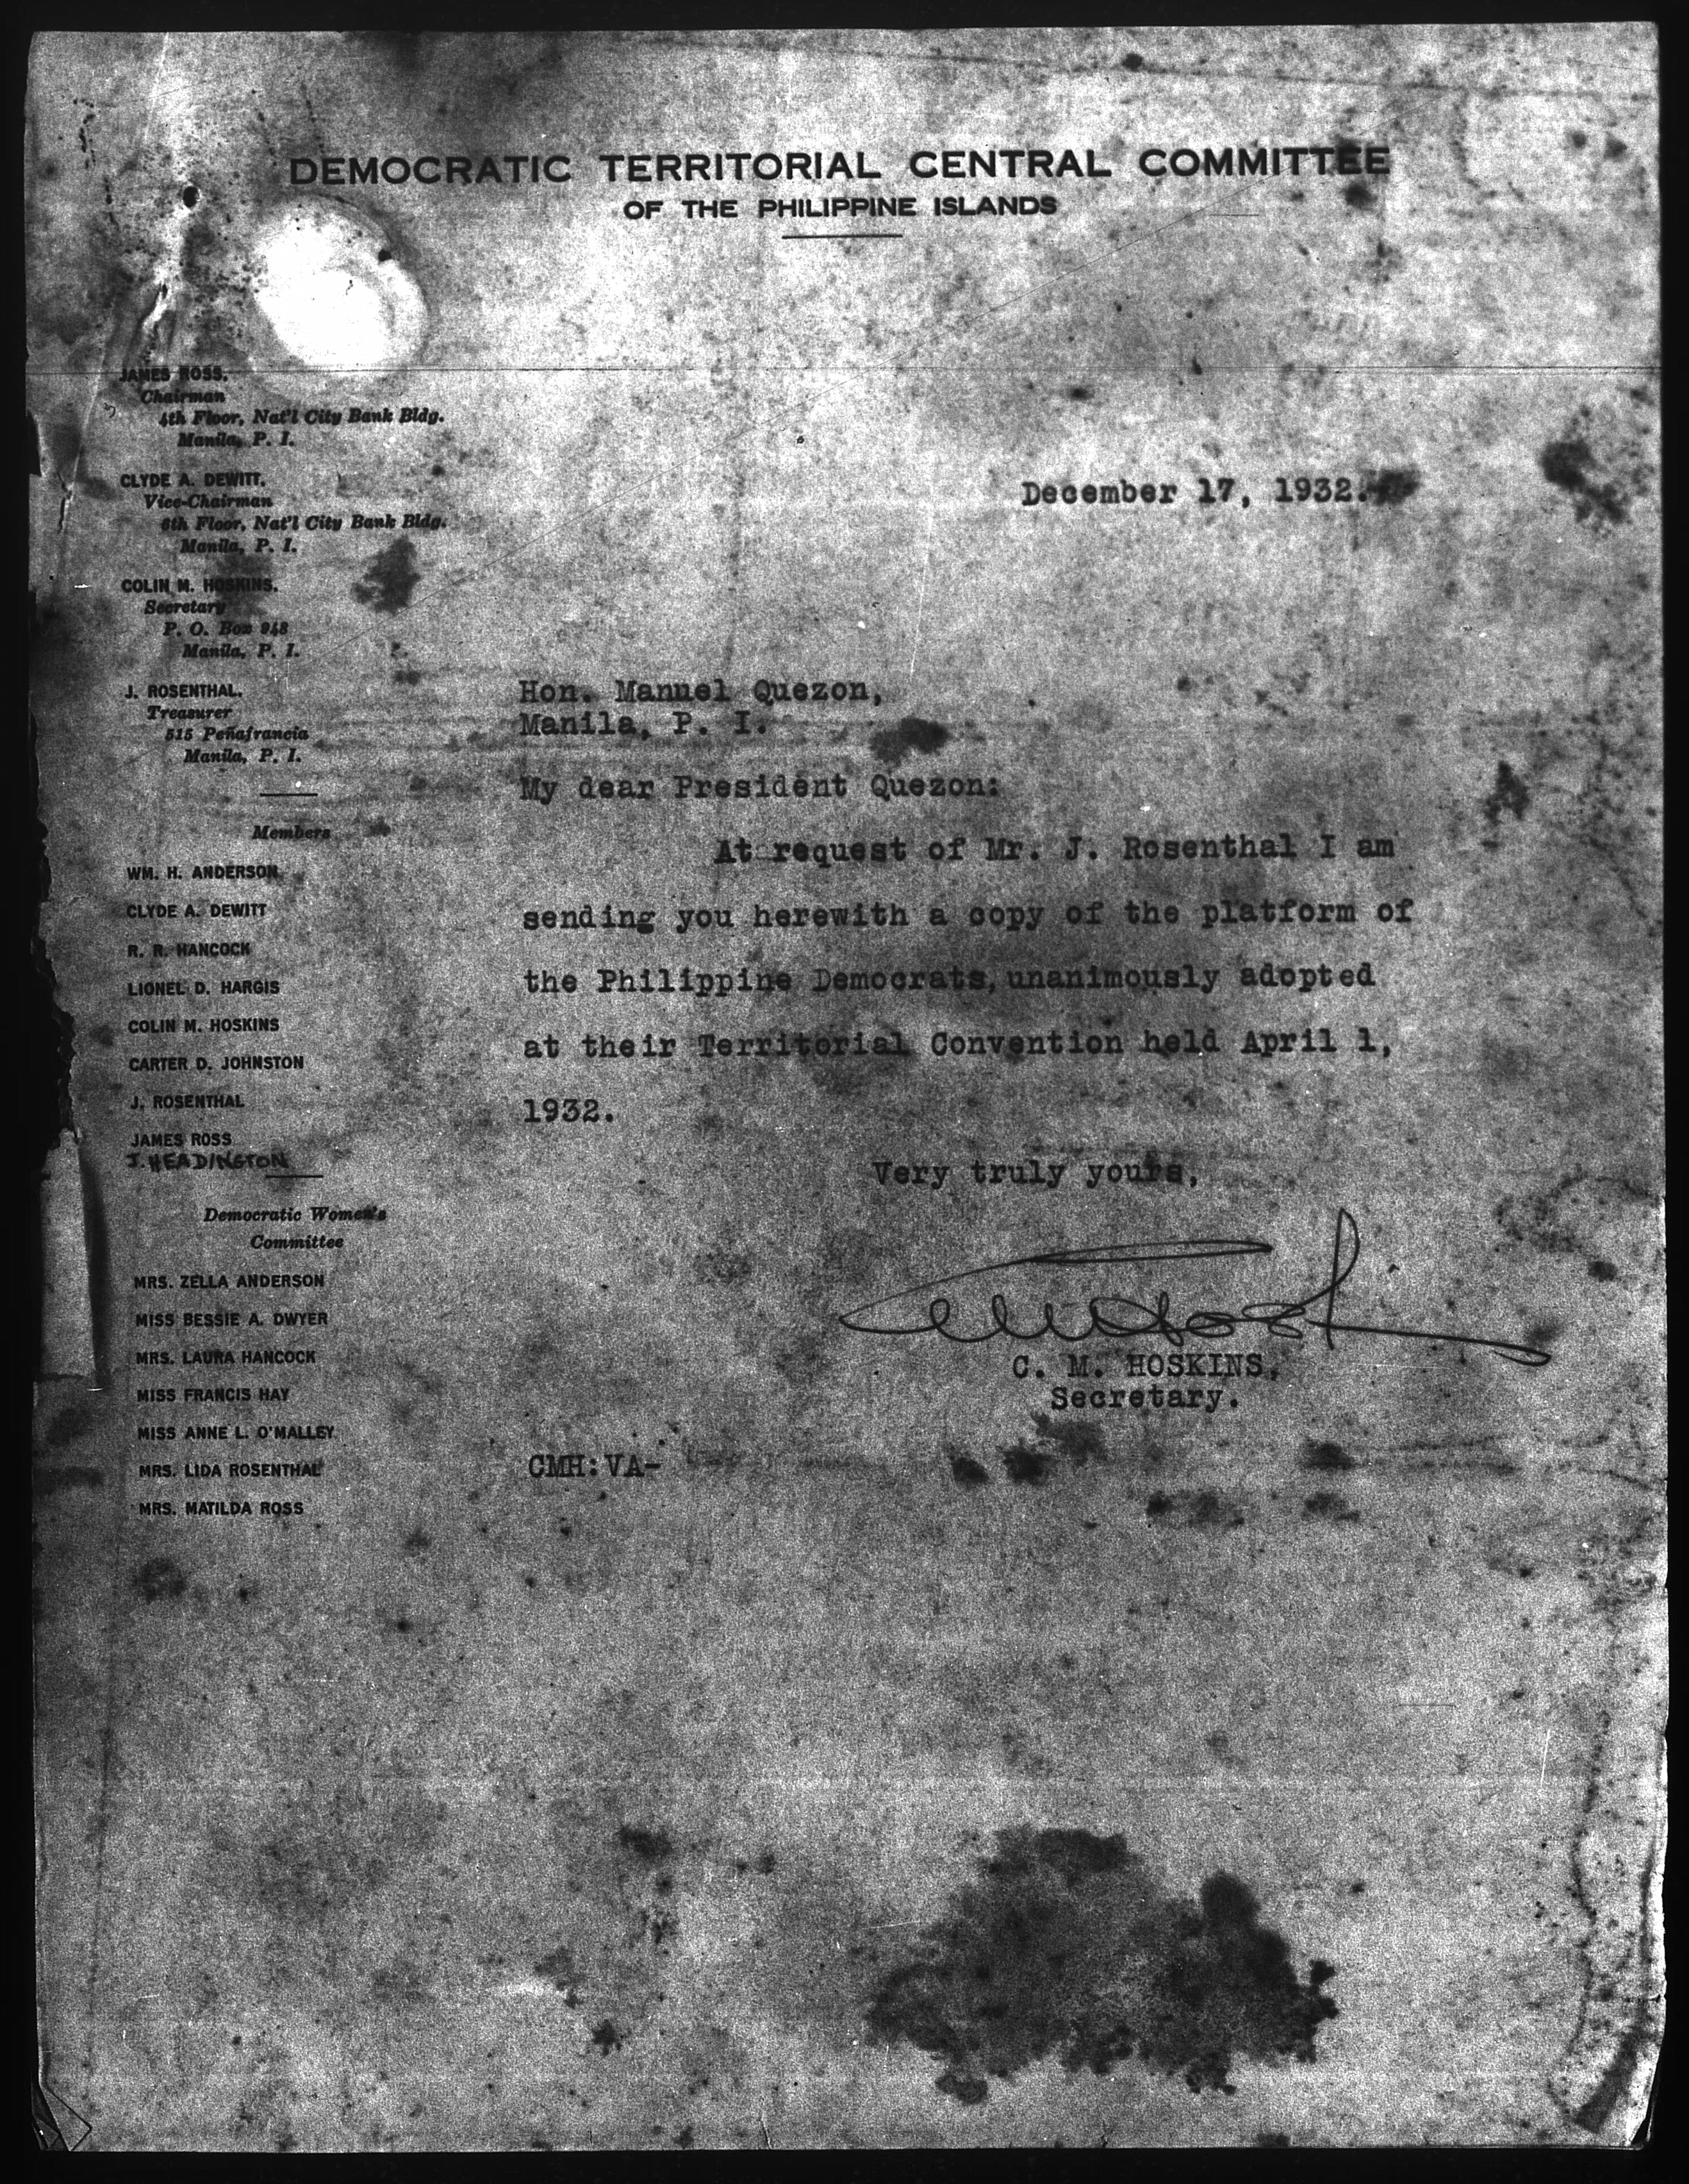 DEMOCRATIC TERRITORIAL CENTRAL COMMITTEE
OF THE PHILIPPINE ISLANDS
JAMES ROSS.
Chairman
4th Floor, Nat'l City Bank Bldg.
Manila, P. I.
CLYDE A. DEWITT.
Vice-Chairman
6th Floor, Nat'l City Bank Bldg.
Manila, P. I.
COLIN M. HOSKINS.
Secretary
P. O. Box 948
Manila, P. I.
J. ROSENTHAL.
Treasurer
515 Peñafrancia
Manila, P. I.
Members
WM. H. ANDERSON
CLYDE A. DEWITT
R. R. HANCOCK
LIONEL D. HARGIS
COLIN M. HOSKINS
CARTER D. JOHNSTON
J. ROSENTHAL
JAMES ROSS
J. HEADINGTON
Democratic Women's
Committee
MRS. ZELLA ANDERSON
MISS BESSIE A. DWYER
MRS. LAURA HANCOCK
MISS FRANCIS HAY
MISS ANNE L. O'MALLEY
MRS. LIDA ROSENTHAL
MRS. MATILDA ROSS
December 17, 1932.
Hon. Manuel Quezon,
Manila, P. I.
My dear President Quezon:
At request of Mr. J. Rosenthal I am
sending you herewith a copy of the platform of
the Philippine Democrats, unanimously adopted
at their Territorial Convention held April 1,
1932.
Very truly yours,
C. M. HOSKINS,
Secretary.
CMH:VA-